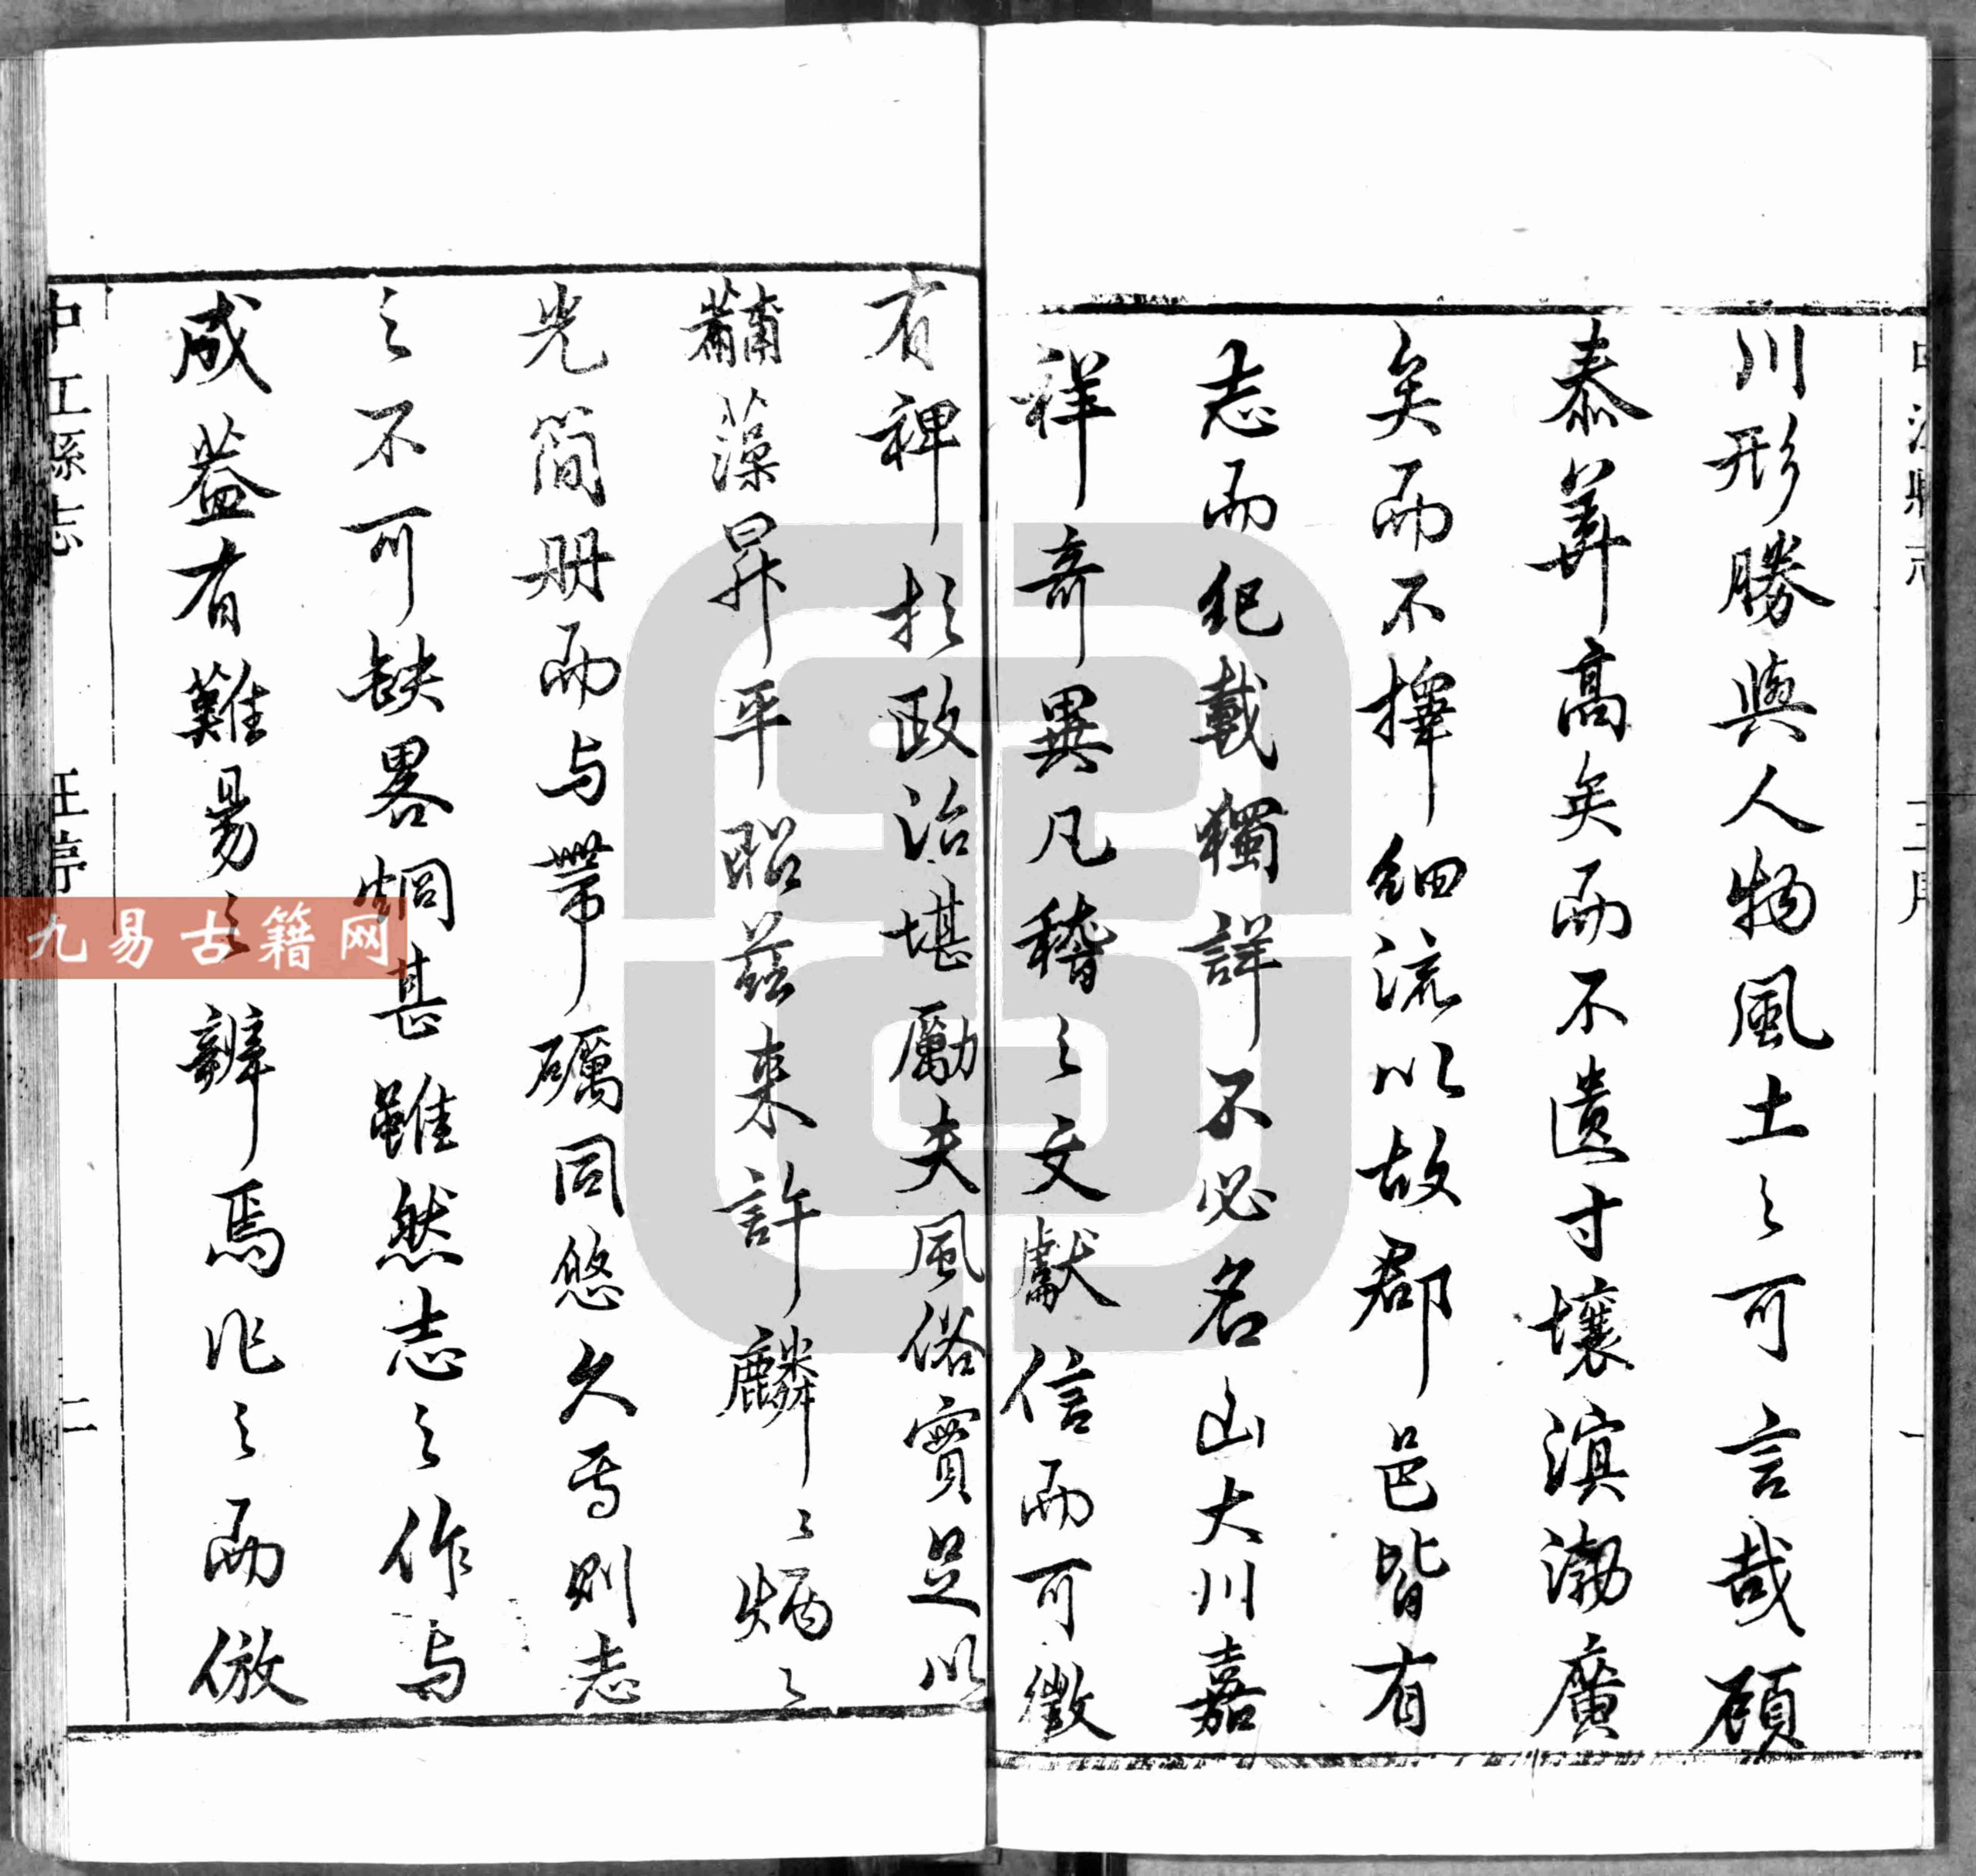 中江縣志
王序
一
川形勝與人物風土之可言哉顧
泰華高矣而不遺寸壤溟渤廣
矣而不擇細流以故郡邑皆有
志而紀載獨詳不必名山大川嘉
祥奇異凡稽之文獻信而可徵
有裨於政治堪勵夫風俗實足以
黼藻昇平昭茲来許麟〻炳〻
光簡册而与帶礪同悠久焉則志
之不可缺畧焵甚雖然志之作与
成葢有難易之辨焉作之而倣
中江縣志
王序
二
九易古籍网